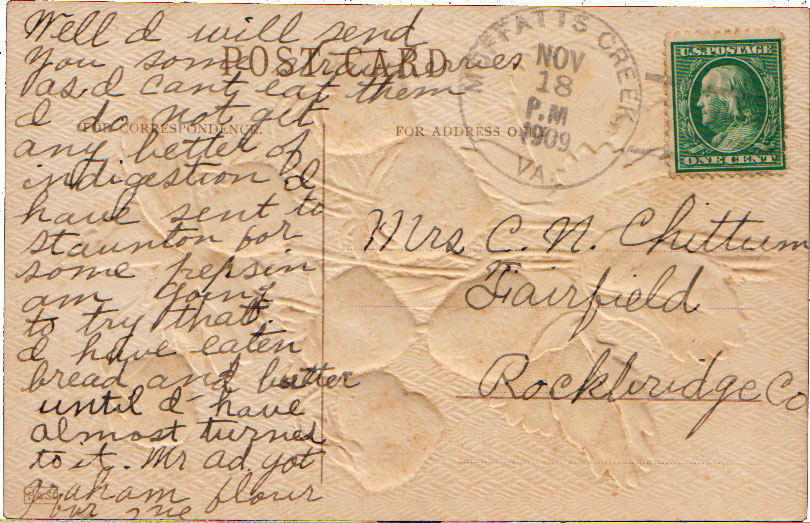 Well I will send
You some strawberries
as I cant eat them
I do not get
any better of
indigestion I
have sent to
Staunton for
some pepsin
am going
to try that.
I have eaten
bread and butter
until I have
almost turned
to it. Mr ad got
graham flour
for me
POST CARD
FOR CORRESPONDENCE.
FOR ADDRESS ONLY
MOFFATTS CREEK
NOV
18
P.M
1909
VA.
U.S. POSTAGE
ONE CENT
Mrs C. N. Chittum
Fairfield
Rockbridge Co